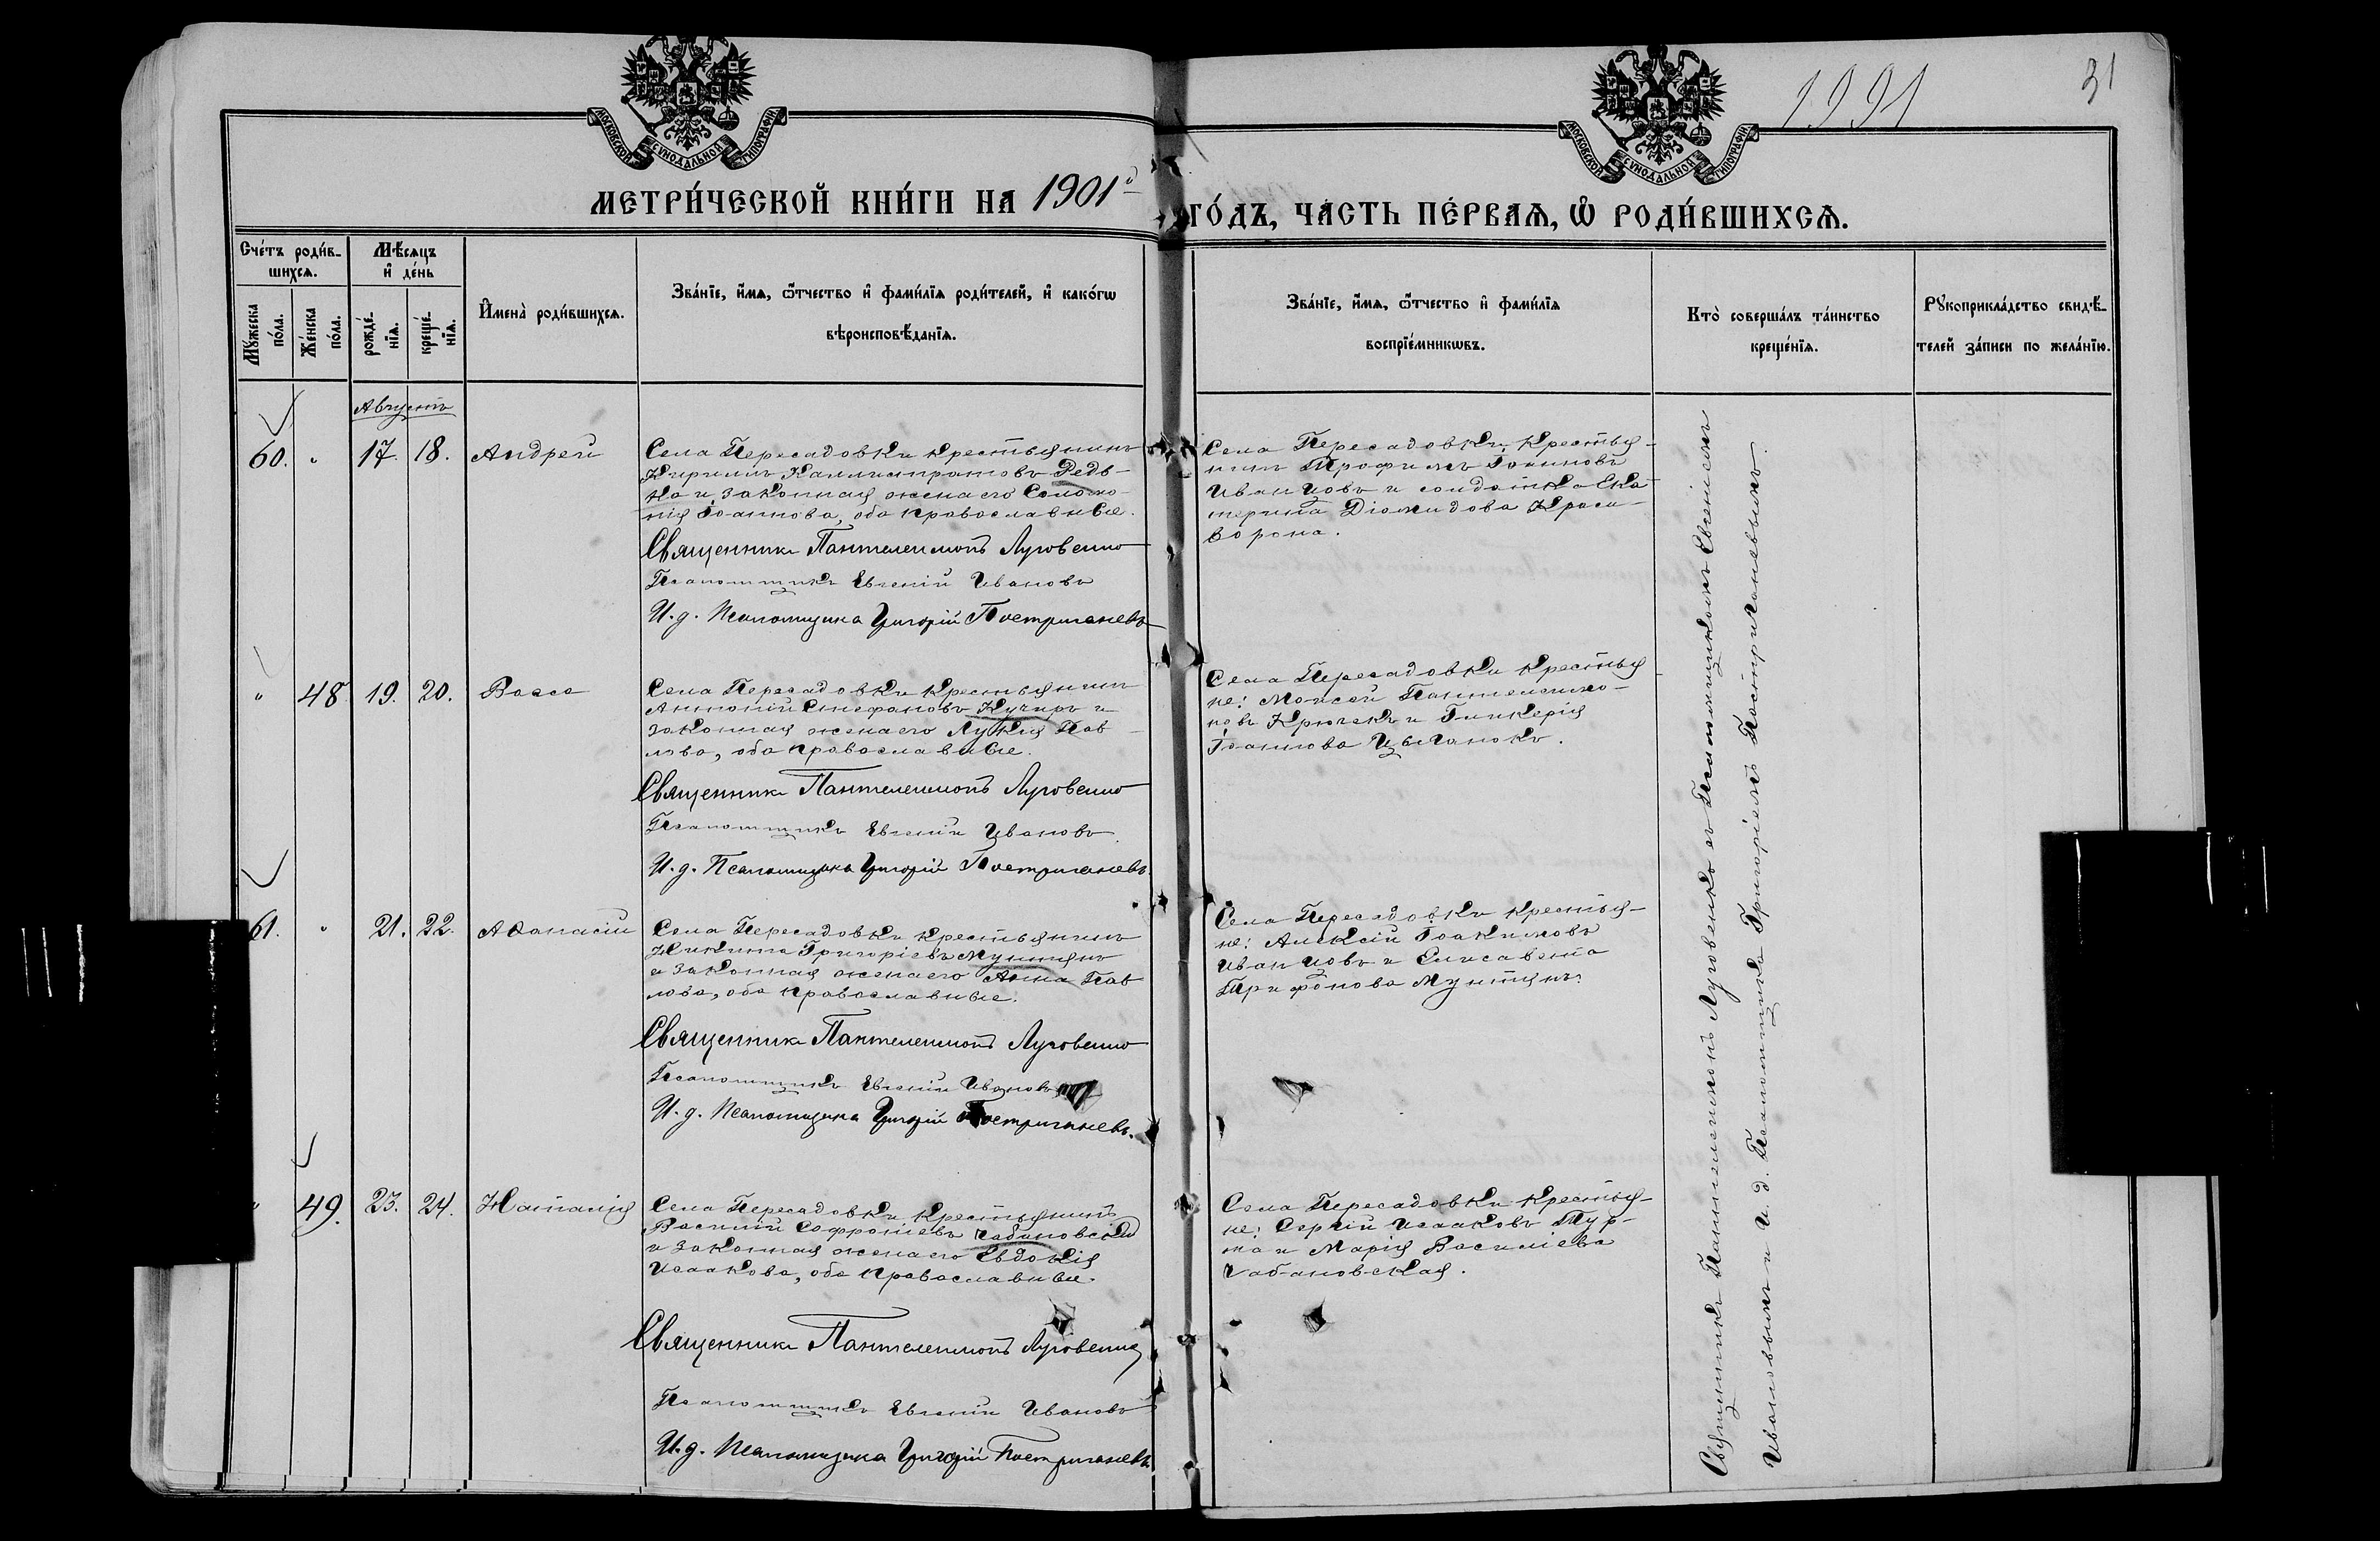 1991
31
МОСКОВСКОЙ СѴНОДАЛЬНОЙ ТИПОГРАФІИ
МОСКОВСКОЙ СѴНОДАЛЬНОЙ ТИПОГРАФІИ
МЕТРИ́ЧЕСКОЙ КНИ́ГИ НА 1901й ГО́ДЪ, ЧА́СТЬ ПЕ́РВАѦ, Ѡ РОДИ́ВШИХСѦ.
Сче́тъ роди́в-
шихсѧ.
Мѣ́сѧцъ
и҆ де́нь
Мꙋ́жеска
по́ла.
Же́нска
по́ла.
рожде́-
нїѧ.
креще́-
нїѧ.
И҆мена̀ роди́вшихсѧ.
Зва́нїе, и҆́мѧ, ѻ҆́тчество и҆ фами́лїѧ роди́телей, и҆ како́гѡ
вѣроисповѣ́данїѧ.
Зва́нїе, и҆́мѧ, ѻ҆́тчество и҆ фами́лїѧ
воспрїе́мникѡвъ.
Кто̀ соверша́лъ та́инство
креще́нїѧ.
Рꙋкоприкла́дство свидѣ́-
телей за́писи по жела́нїю.
Августъ
60. " 17. 18. Андрей
Села Пересадовки крестьянинъ
Кириллъ Каллистратовъ Редь-
ка и законная жена его Соломо-
нія Іоаннова, оба православные.
Священникъ Пантелеимонъ Луговенко
Псаломщикъ Евгеній Ивановъ
И. д. Псаломщика Григорій Постригачевъ
Села Пересадовки крестья-
нинъ Трофимъ Іоанновъ
Иванцовъ и солдатка Ека-
терина Діомидова Краси-
ворона.
" 48 19. 20. Васса
Села Пересадовки крестьянинъ
Антоній Стефановъ Кучиръ и
законная жена его Лукія Пав-
лова, оба православные.
Священникъ Пантелеимонъ Луговенко
Псаломщикъ Евгеній Ивановъ
И. д. Псаломщика Григорій Постригачевъ.
Села Пересадовки крестья
не: Моисей Пантелеимо-
новъ Крючекъ и Гликерія
Іоаннова Цыганокъ.
61. " 21. 22. Аѳанасій
Села Пересадовки крестьянинъ
Никита Григоріевъ Мунтянъ
и законная жена его Анна Пав
лова, оба православные.
Священникъ Пантелеимонъ Луговенко
Псаломщикъ Евгеній Ивановъ
И. д. Псаломщика Григорій Постригачевъ.
Села Пересадовки крестья-
не: Алексій Іоакимовъ
Иванцовъ и Елисавета
Трифонова Мунтянъ.
" 49. 23. 24. Наталія
Села Пересадовки крестьянинъ
Василій Софроніевъ Чабановскій
и законная жена его Евдокія
Исаакова, оба православные.
Священникъ Пантелеимонъ Луговенко
Псаломщикъ Евгеній Ивановъ
И. д. Псаломщика Григорій Постригачевъ
Села Пересадовки крестья-
не: Сергій Исааковъ Тур-
ка и Марія Василіева
Чабановская.
Священникъ Пантелеимонъ Луговенко съ Псаломщикомъ Евгеніемъ
Ивановымъ и и. д. Псаломщика Григоріемъ Постригачевымъ.